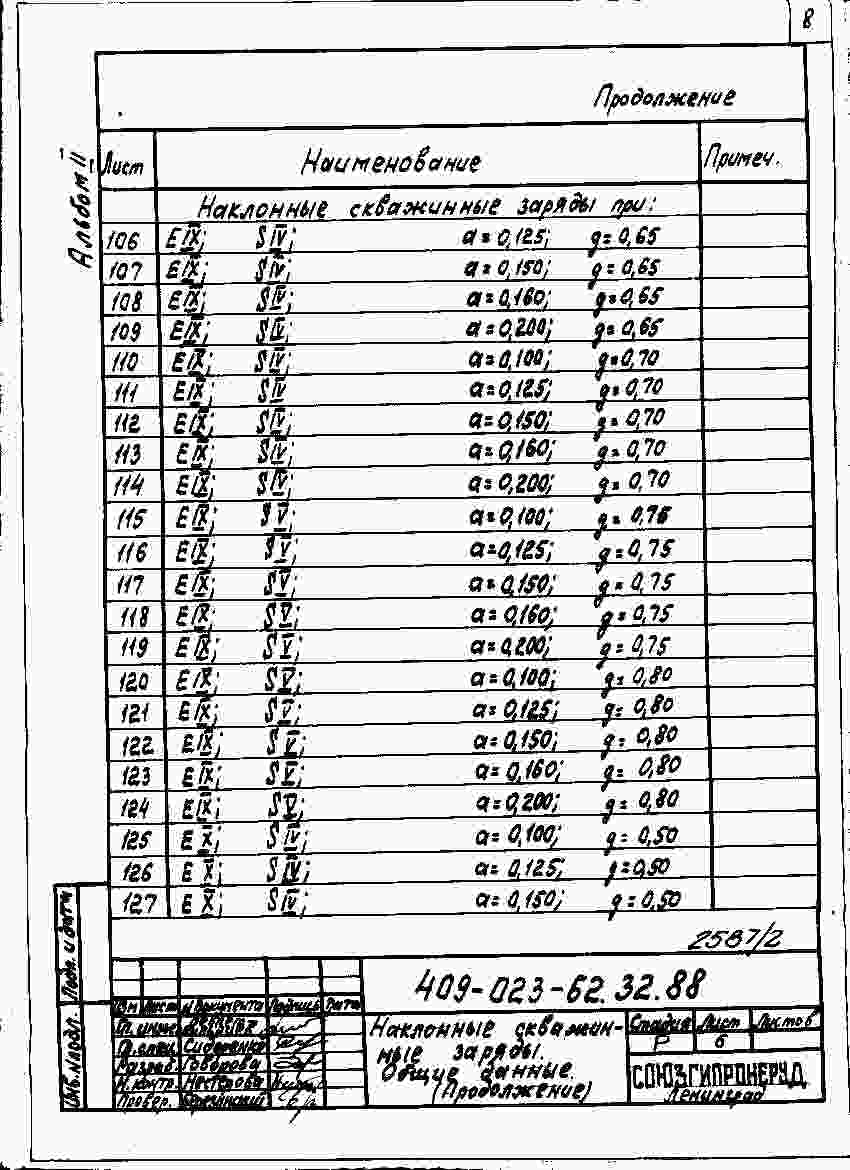 8
Продолжение
Альбом II
Лист Наименование Примеч.
Наклонные скважинные заряды при:
106 E IX; S IV; a = 0,125; g = 0,65
107 E IX; S IV; a = 0,150; g = 0,65
108 E IX; S IV; a = 0,160; g = 0,65
109 E IX; S IV; a = 0,200; g = 0,65
110 E IX; S IV; a = 0,100; g = 0,70
111 E IX; S IV a = 0,125; g = 0,70
112 E IX; S IV; a = 0,150; g = 0,70
113 E IX; S IV; a = 0,160; g = 0,70
114 E IX; S IV; a = 0,200; g = 0,70
115 E IX; S V; a = 0,100; g = 0,75
116 E IX; S V; a = 0,125; g = 0,75
117 E IX; S V; a = 0,150; g = 0,75
118 E IX; S V; a = 0,160; g = 0,75
119 E IX; S V; a = 0,200; g = 0,75
120 E IX; S V; a = 0,100; g = 0,80
121 E IX; S V; a = 0,125; g = 0,80
122 E IX; S V; a = 0,150; g = 0,80
123 E IX; S V; a = 0,160; g = 0,80
124 E IX; S V; a = 0,200; g = 0,80
125 E X; S IV; a = 0,100; g = 0,50
126 E X; S IV; a = 0,125; g = 0,50
127 E X; S IV; a = 0,150; g = 0,50
2587/2
409-023-62.32.88
Изм Лист N документа Подпись Дата
Гл. инж.
Гл. спец. Сидоренко
Разраб. Говорова
Н. контр. Нестерова
Провер.
Наклонные скважин-
ные заряды.
Общие данные.
(Продолжение)
Стадия Лист Листов
Р 6
СОЮЗГИПРОНЕРУД
Ленинград
Подп. и дата
Инв. N подл.